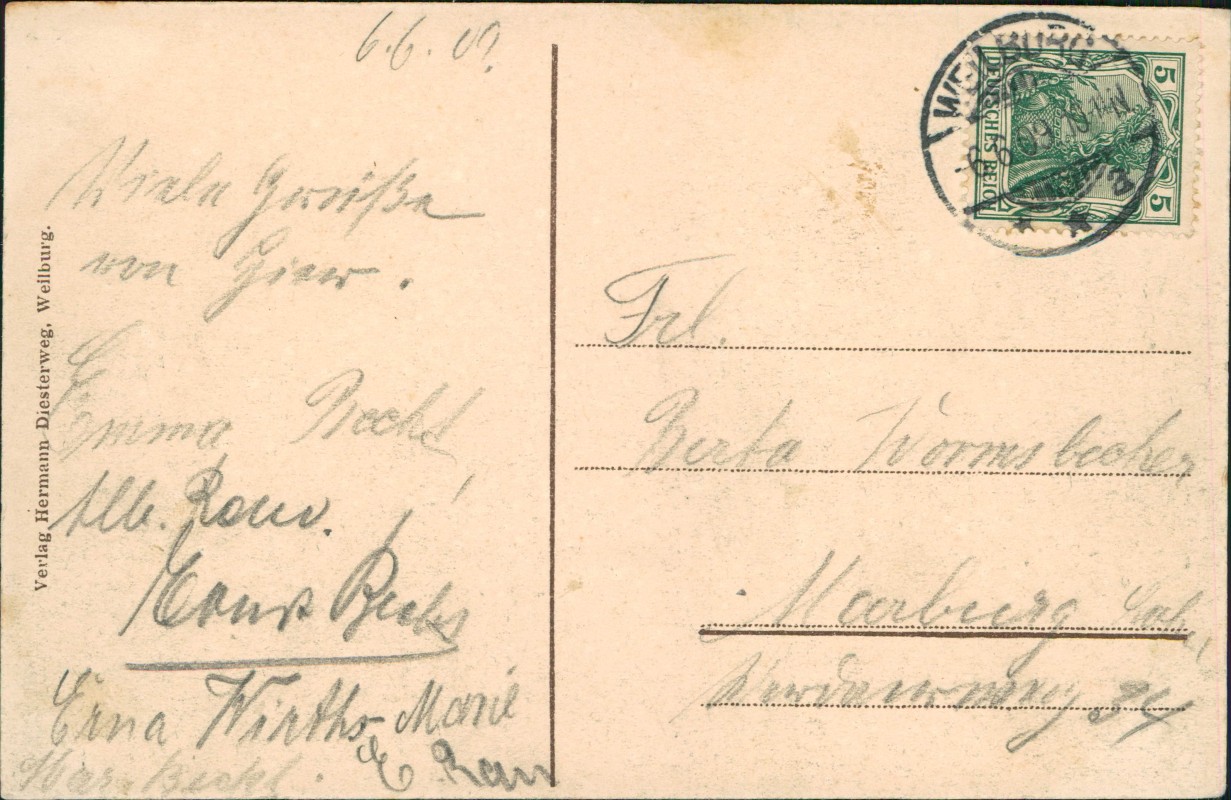 6.6.09.
Viele Grüße
von hier.
Emma Becht
Alb. Rau.
Ernst Becht
Erna Wirths Marie
Mar. Becht. E Rau
Verlag Hermann Diesterweg, Weilburg.
WEILBURG
6.6.09
DEUTSCHES REICH
5
5
Frl.
Berta Wormsbecher
Marburg Lahn